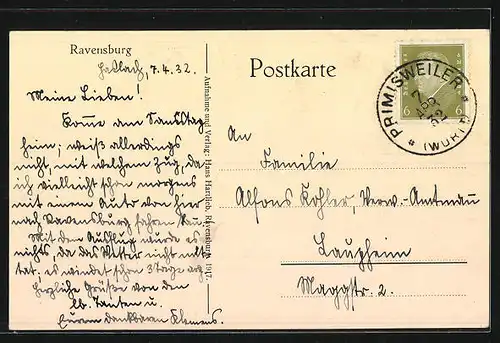 Ravensburg
Haslach, 7.4.32.
Meine Lieben!
Komme am Samstag
heim; weiß allerdings
nicht, mit welchem Zug, da
ich vielleicht schon morgens
mit einem Auto von hier
nach Ravensburg fahren kann.
Mit dem Ausflug wurde es
nichts, da das Wetter nicht mit
tat. Es windet schon 3 Tage arg.
Herzliche Grüße von den
lb. Tanten u.
Eurem dankbaren Klemens.
Aufnahme und Verlag: Hans Hartlieb, Ravensburg
Postkarte
6 6
PRIMISWEILER
7
APR
32
(WÜRTT)
An
Familie
Alfons Kohler, Verw.-Amtmann
Laupheim
Maggstr. 2.